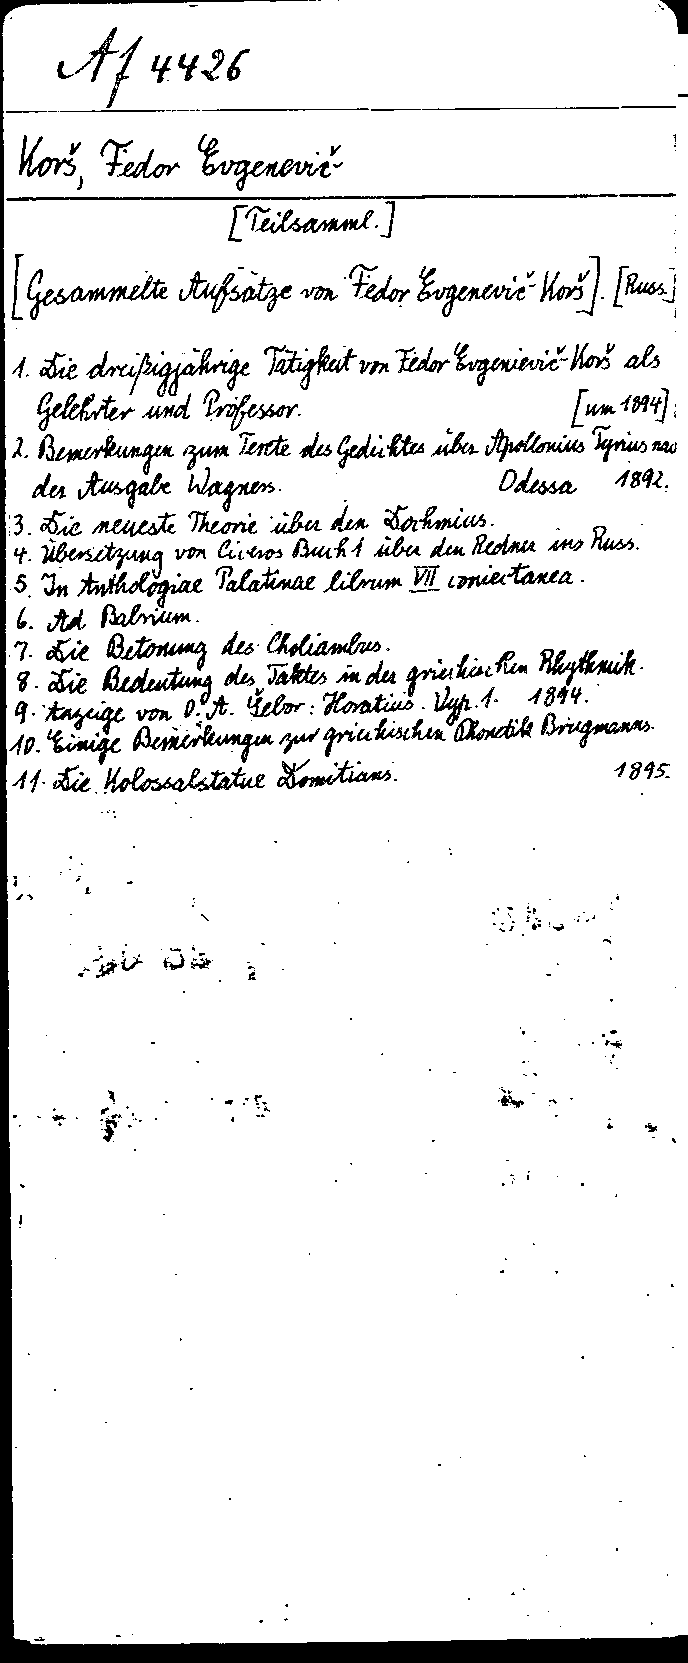 Af 4426
Korš, Fedor Evgenevič
[Teilsamml.]
[Gesammelte Aufsätze von Fedor Evgenevič Korš]. [Russ.]
1. Die dreißigjährige Tätigkeit von Fedor Evgenievič Korš als
Gelehrter und Professor. [um 1894].
2. Bemerkungen zum Texte des Gedichtes über Apollonius Tyrius nac
der Ausgabe Wagners. Odessa 1892.
3. Die neueste Theorie über den Dochmius.
4. Übersetzung von Ciceros Buch 1 über den Redner ins Russ.
5. In Anthologiae Palatinae librum VII coniectanea.
6. Ad Babrium.
7. Die Betonung des Choliambus.
8. Die Bedeutung des Taktes in der griechischen Rhythmik.
9. Anzeige von O. A. Šebor: Horatius. Vyp. 1. 1894.
10. Einige Bemerkungen zur griechischen Phonetik Brugmanns.
11. Die Kolossalstatue Domitians. 1895.